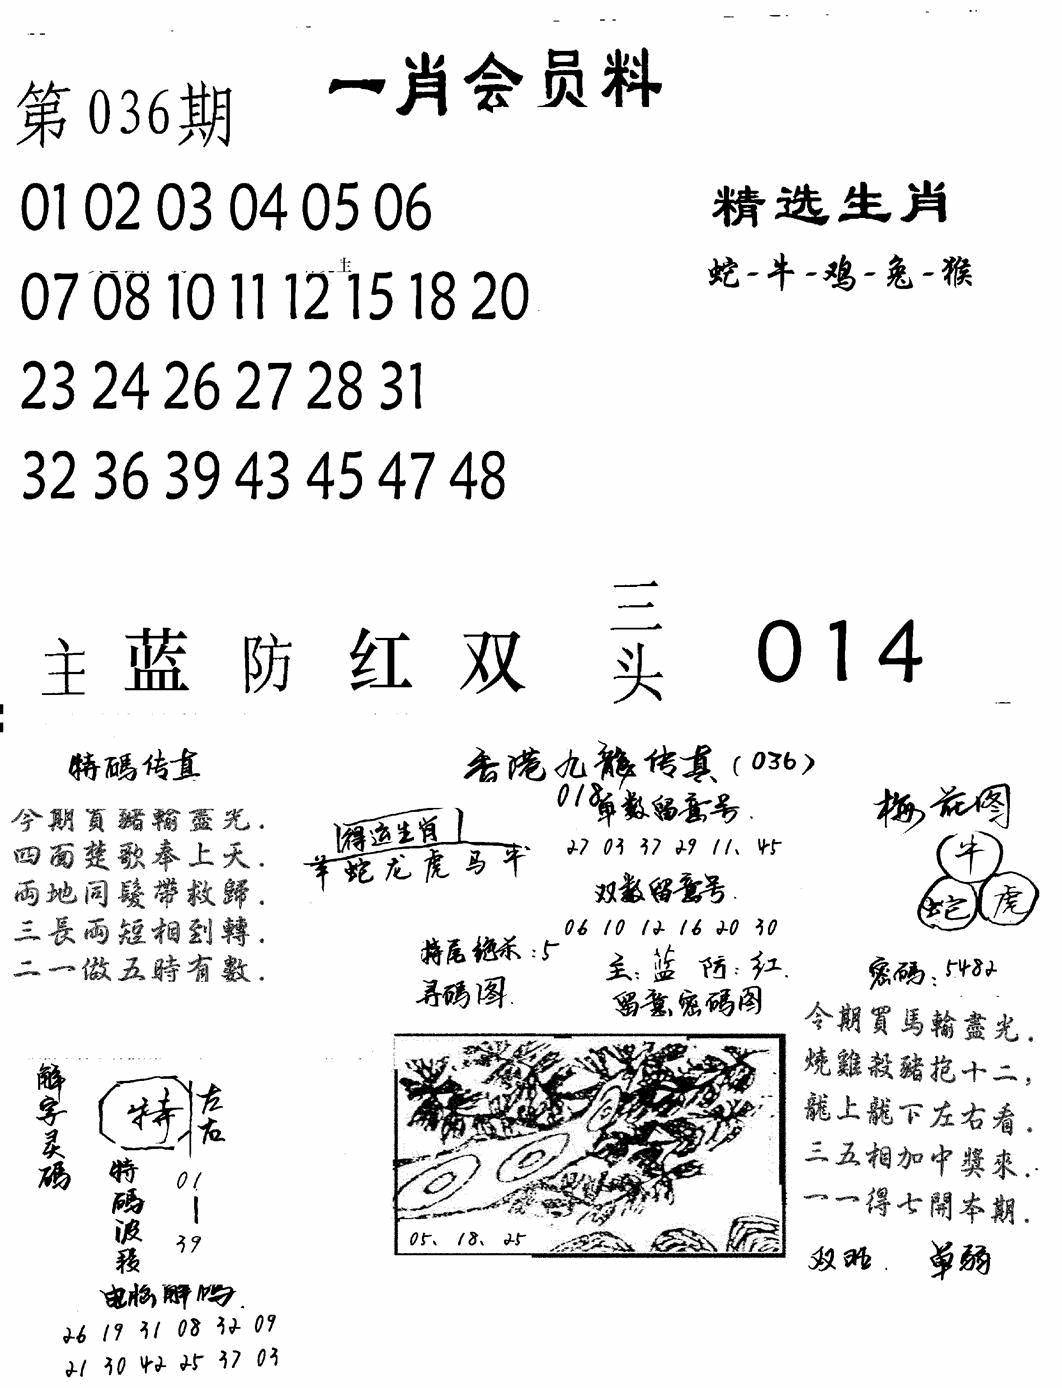 一肖会员料
第036期
01 02 03 04 05 06
07 08 10 11 12 15 18 20
23 24 26 27 28 31
32 36 39 43 45 47 48
精选生肖
蛇-牛-鸡-兔-猴
主 蓝 防 红 双 三头 014
特碼传真
今期買豬輸盡光.
四面楚歌奉上天.
兩地同髮帶救歸.
三長兩短相到轉.
二一做五時有數.
香港九龍传真(036)
018
得运生肖
羊蛇龙虎马牛
单数留意号.
27 03 37 29 11、45
双数留意号.
06 10 12 16 20 30
特尾绝杀:5
主:蓝 防:红.
寻碼图.
留意密码图
05、18、25
梅花图
牛
蛇 虎
密碼:5482
今期買馬輸盡光.
燒雞殺豬抱十二,
龍上龍下左右看.
三五相加中獎來.
一一得七開本期.
双旺. 单弱
解字灵碼
特
左右
特碼波段
01
39
电脑解码.
26 19 31 08 32 09
21 30 42 25 37 03